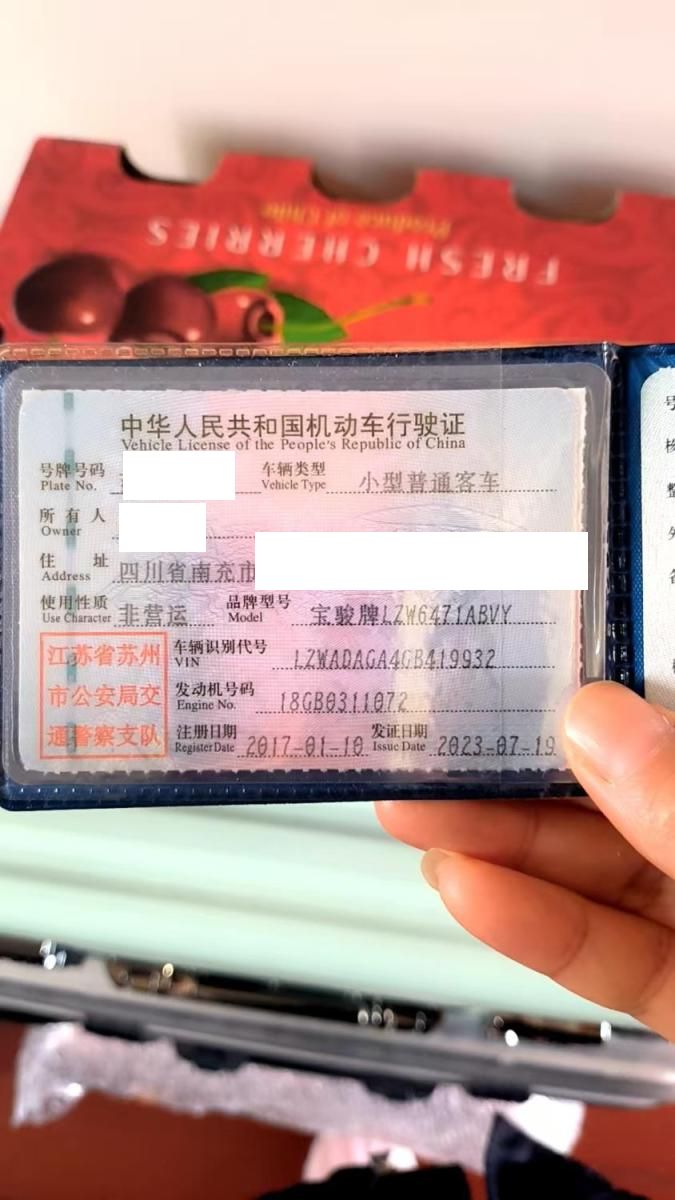 Produce of Chile
FRESH CHERRIES
中华人民共和国机动车行驶证
Vehicle License of the People's Republic of China
号牌号码 车辆类型 小型普通客车
Plate No. Vehicle Type
所有人
Owner
住址 四川省南充市
Address
使用性质 非营运 品牌型号 宝骏牌LZW6471ABVY
Use Character Model
江苏省苏州
市公安局交
通警察支队
车辆识别代号 LZWADAGA4GB419932
VIN
发动机号码 18GB0311072
Engine No.
注册日期 2017-01-10 发证日期 2023-07-19
Register Date Issue Date
号
整